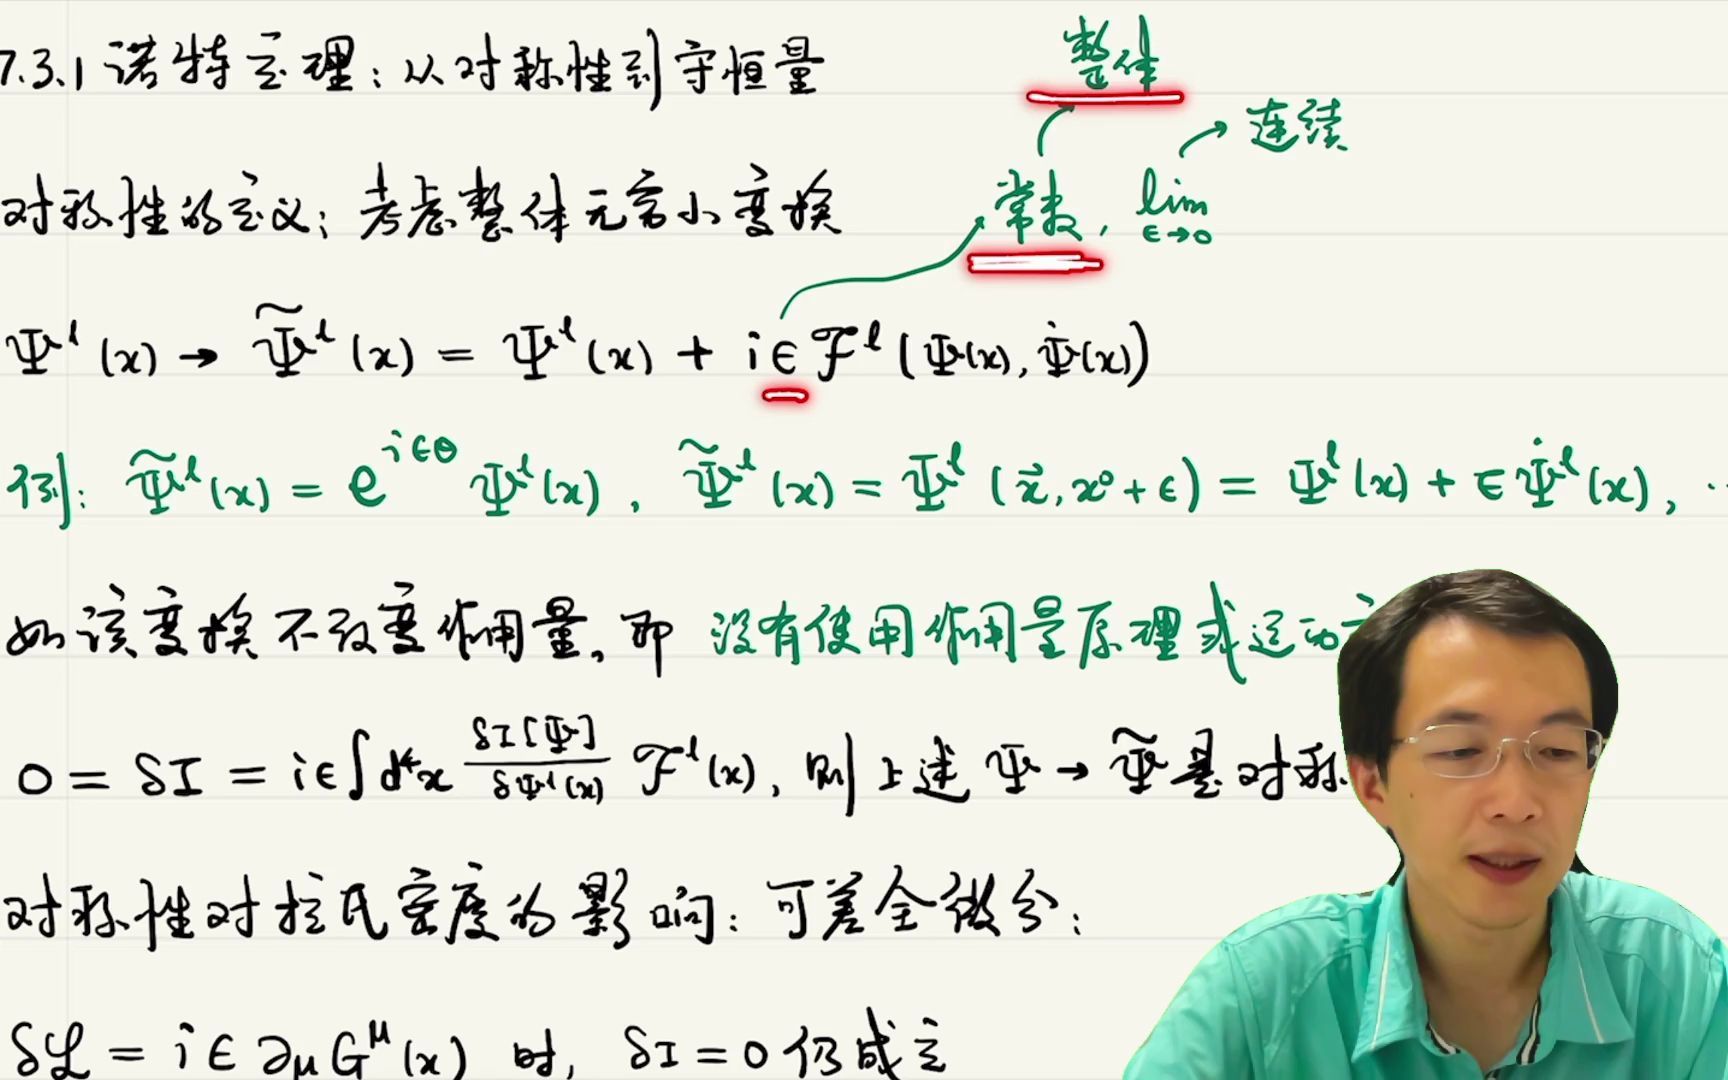 7.3.1 诺特定理：从对称性到守恒量
整体
连续
对称性的定义：考虑整体无穷小变换
常数， lim ε→0
Ψˡ(x) → Ψ̃ˡ(x) = Ψˡ(x) + iϵℱˡ(Ψ(x), Ψ̇(x))
例：Ψ̃ˡ(x) = e^{iϵθ} Ψˡ(x), Ψ̃ˡ(x) = Ψˡ(x⃗, x⁰+ϵ) = Ψˡ(x) + ϵΨ̇ˡ(x), …
如该变换不改变作用量，即 没有使用作用量原理或运动
0 = δI = iϵ∫d⁴x δI[Ψ]/δΨˡ(x) ℱˡ(x)，则上述 Ψ → Ψ̃ 是对称
对称性对拉氏密度的影响：可差全微分：
δℒ = iϵ∂_μ G^μ(x) 时，δI = 0 仍成立